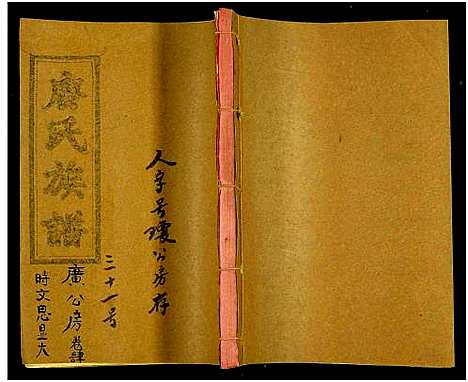 唐氏族譜
廣公房卷肆
時文思旦大
三十一号
人字号瓊公房存